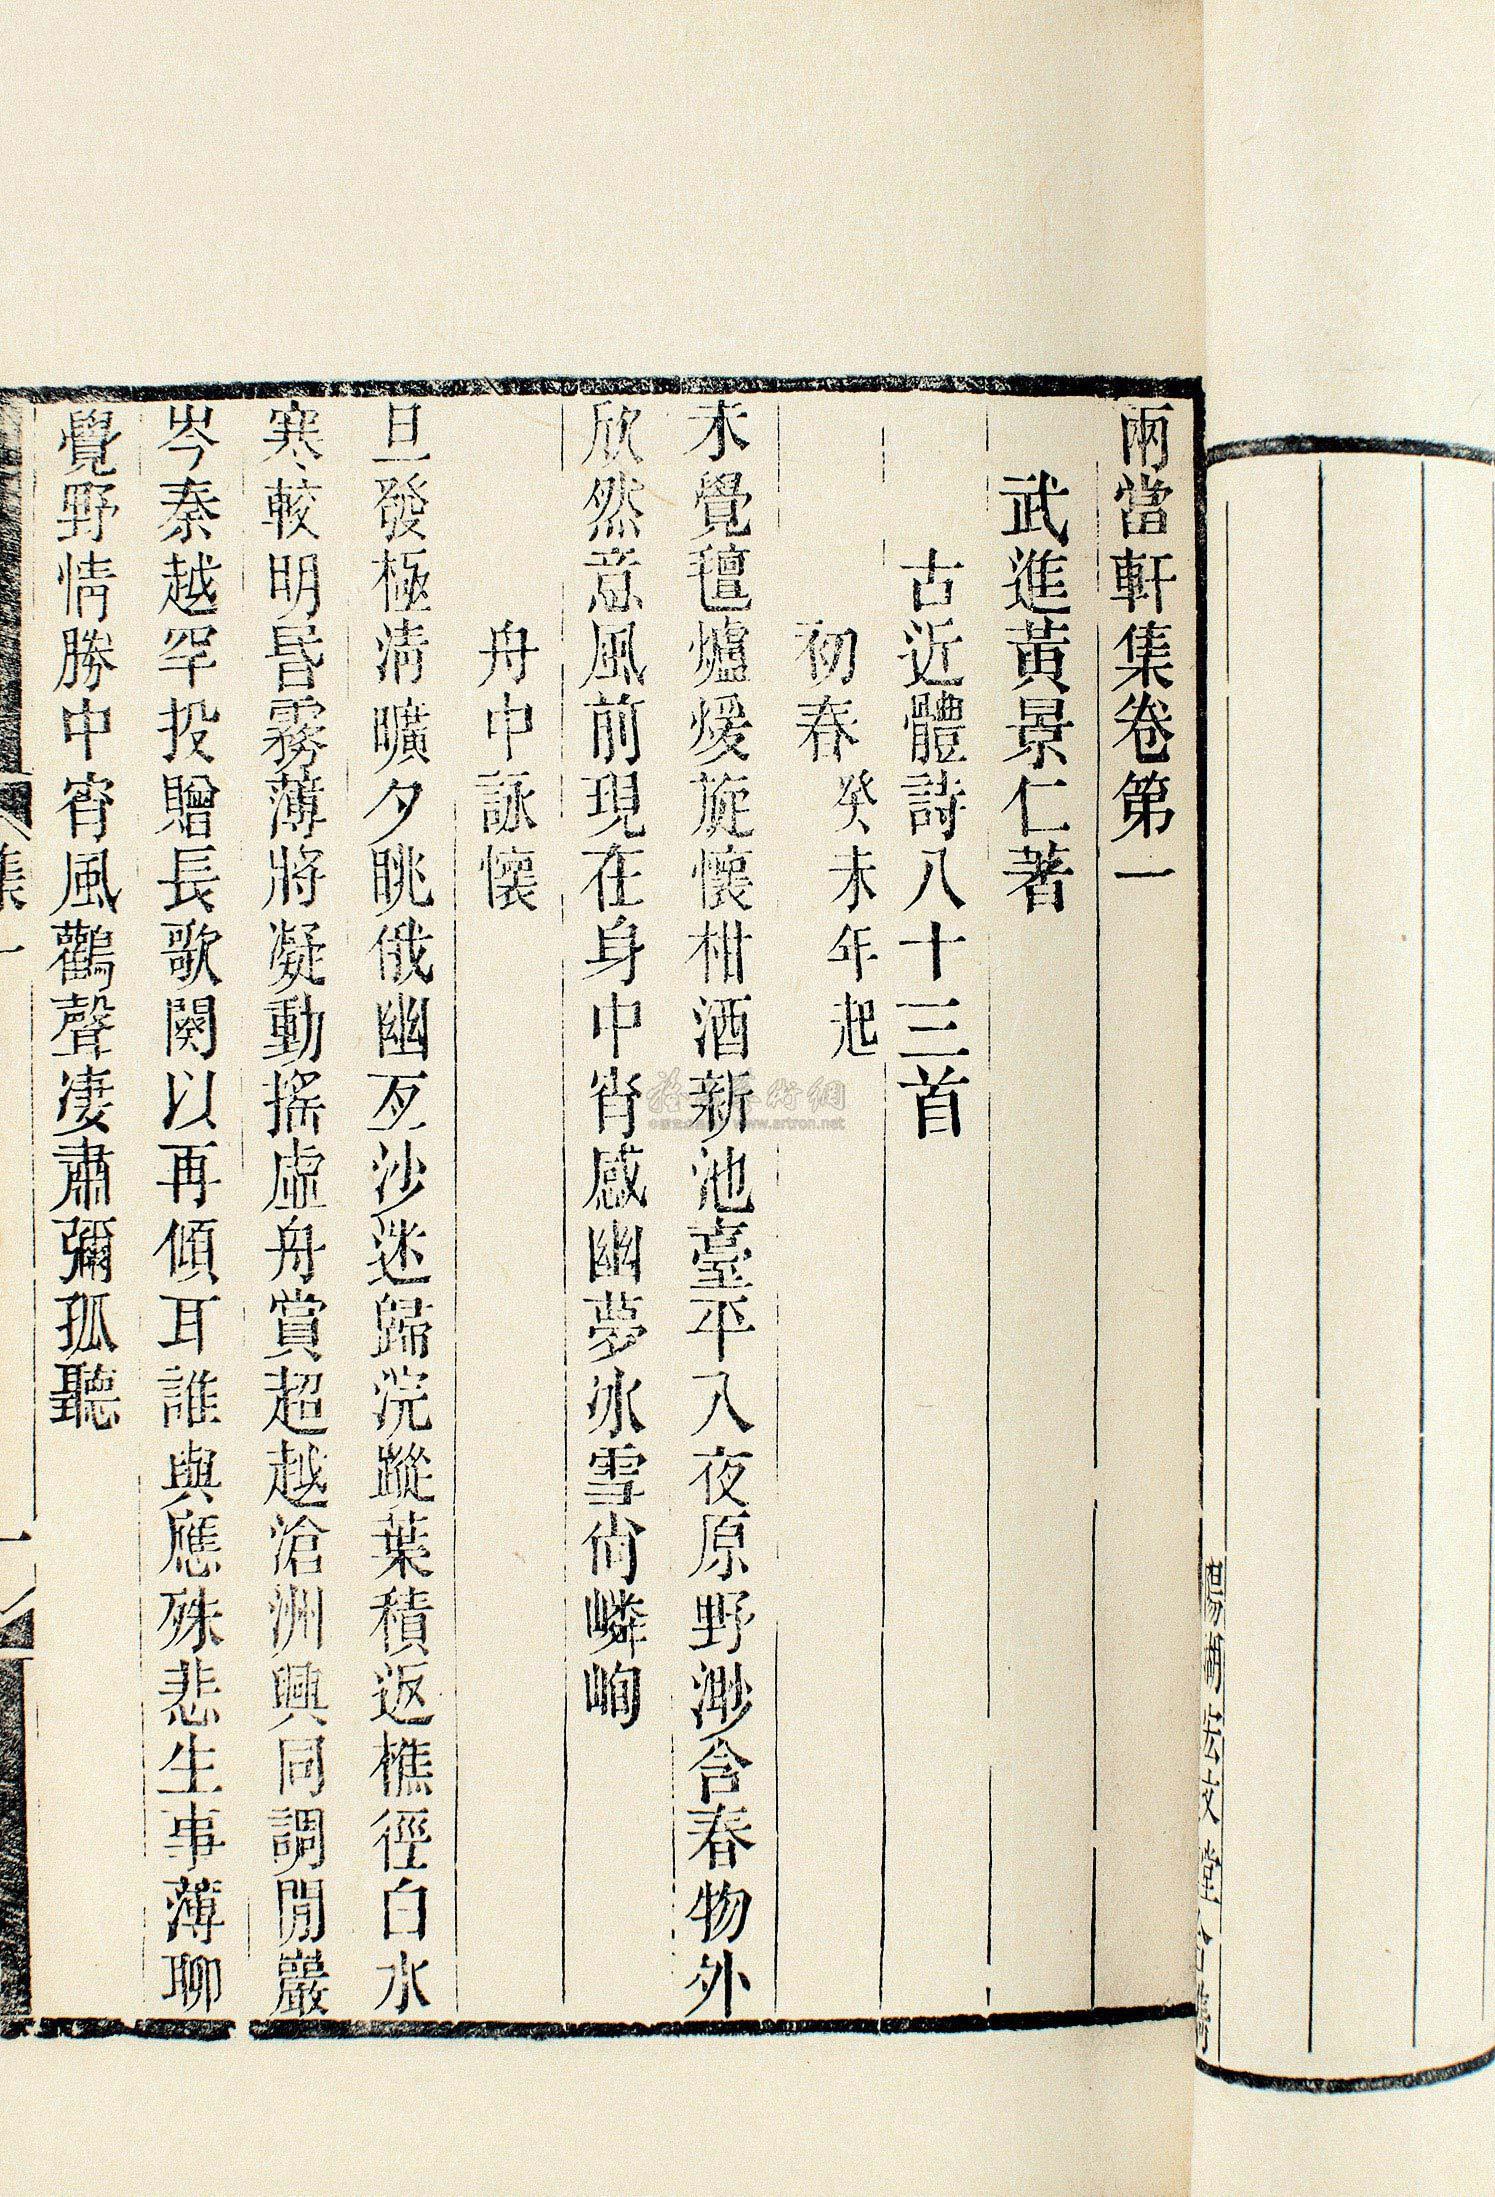 兩當軒集卷第一
武進黃景仁著
古近體詩八十三首
初春 癸未年起
未覺氊爐煖旋懷柑酒新池臺平入夜原野渺含春物外
欣然意風前現在身中宵感幽夢冰雪尙嶙峋
舟中詠懷
旦發極淸曠夕眺俄幽亙沙迷歸浣蹤葉積返樵徑白水
寒較明昏霧薄將凝動搖虛舟賞超越滄洲興同調閒巖
岑秦越罕投贈長歌闋以再傾耳誰與應殊悲生事薄聊
覺野情勝中宵風鸛聲淒肅彌孤聽
集一
一
陽湖
文堂
www.artron.net